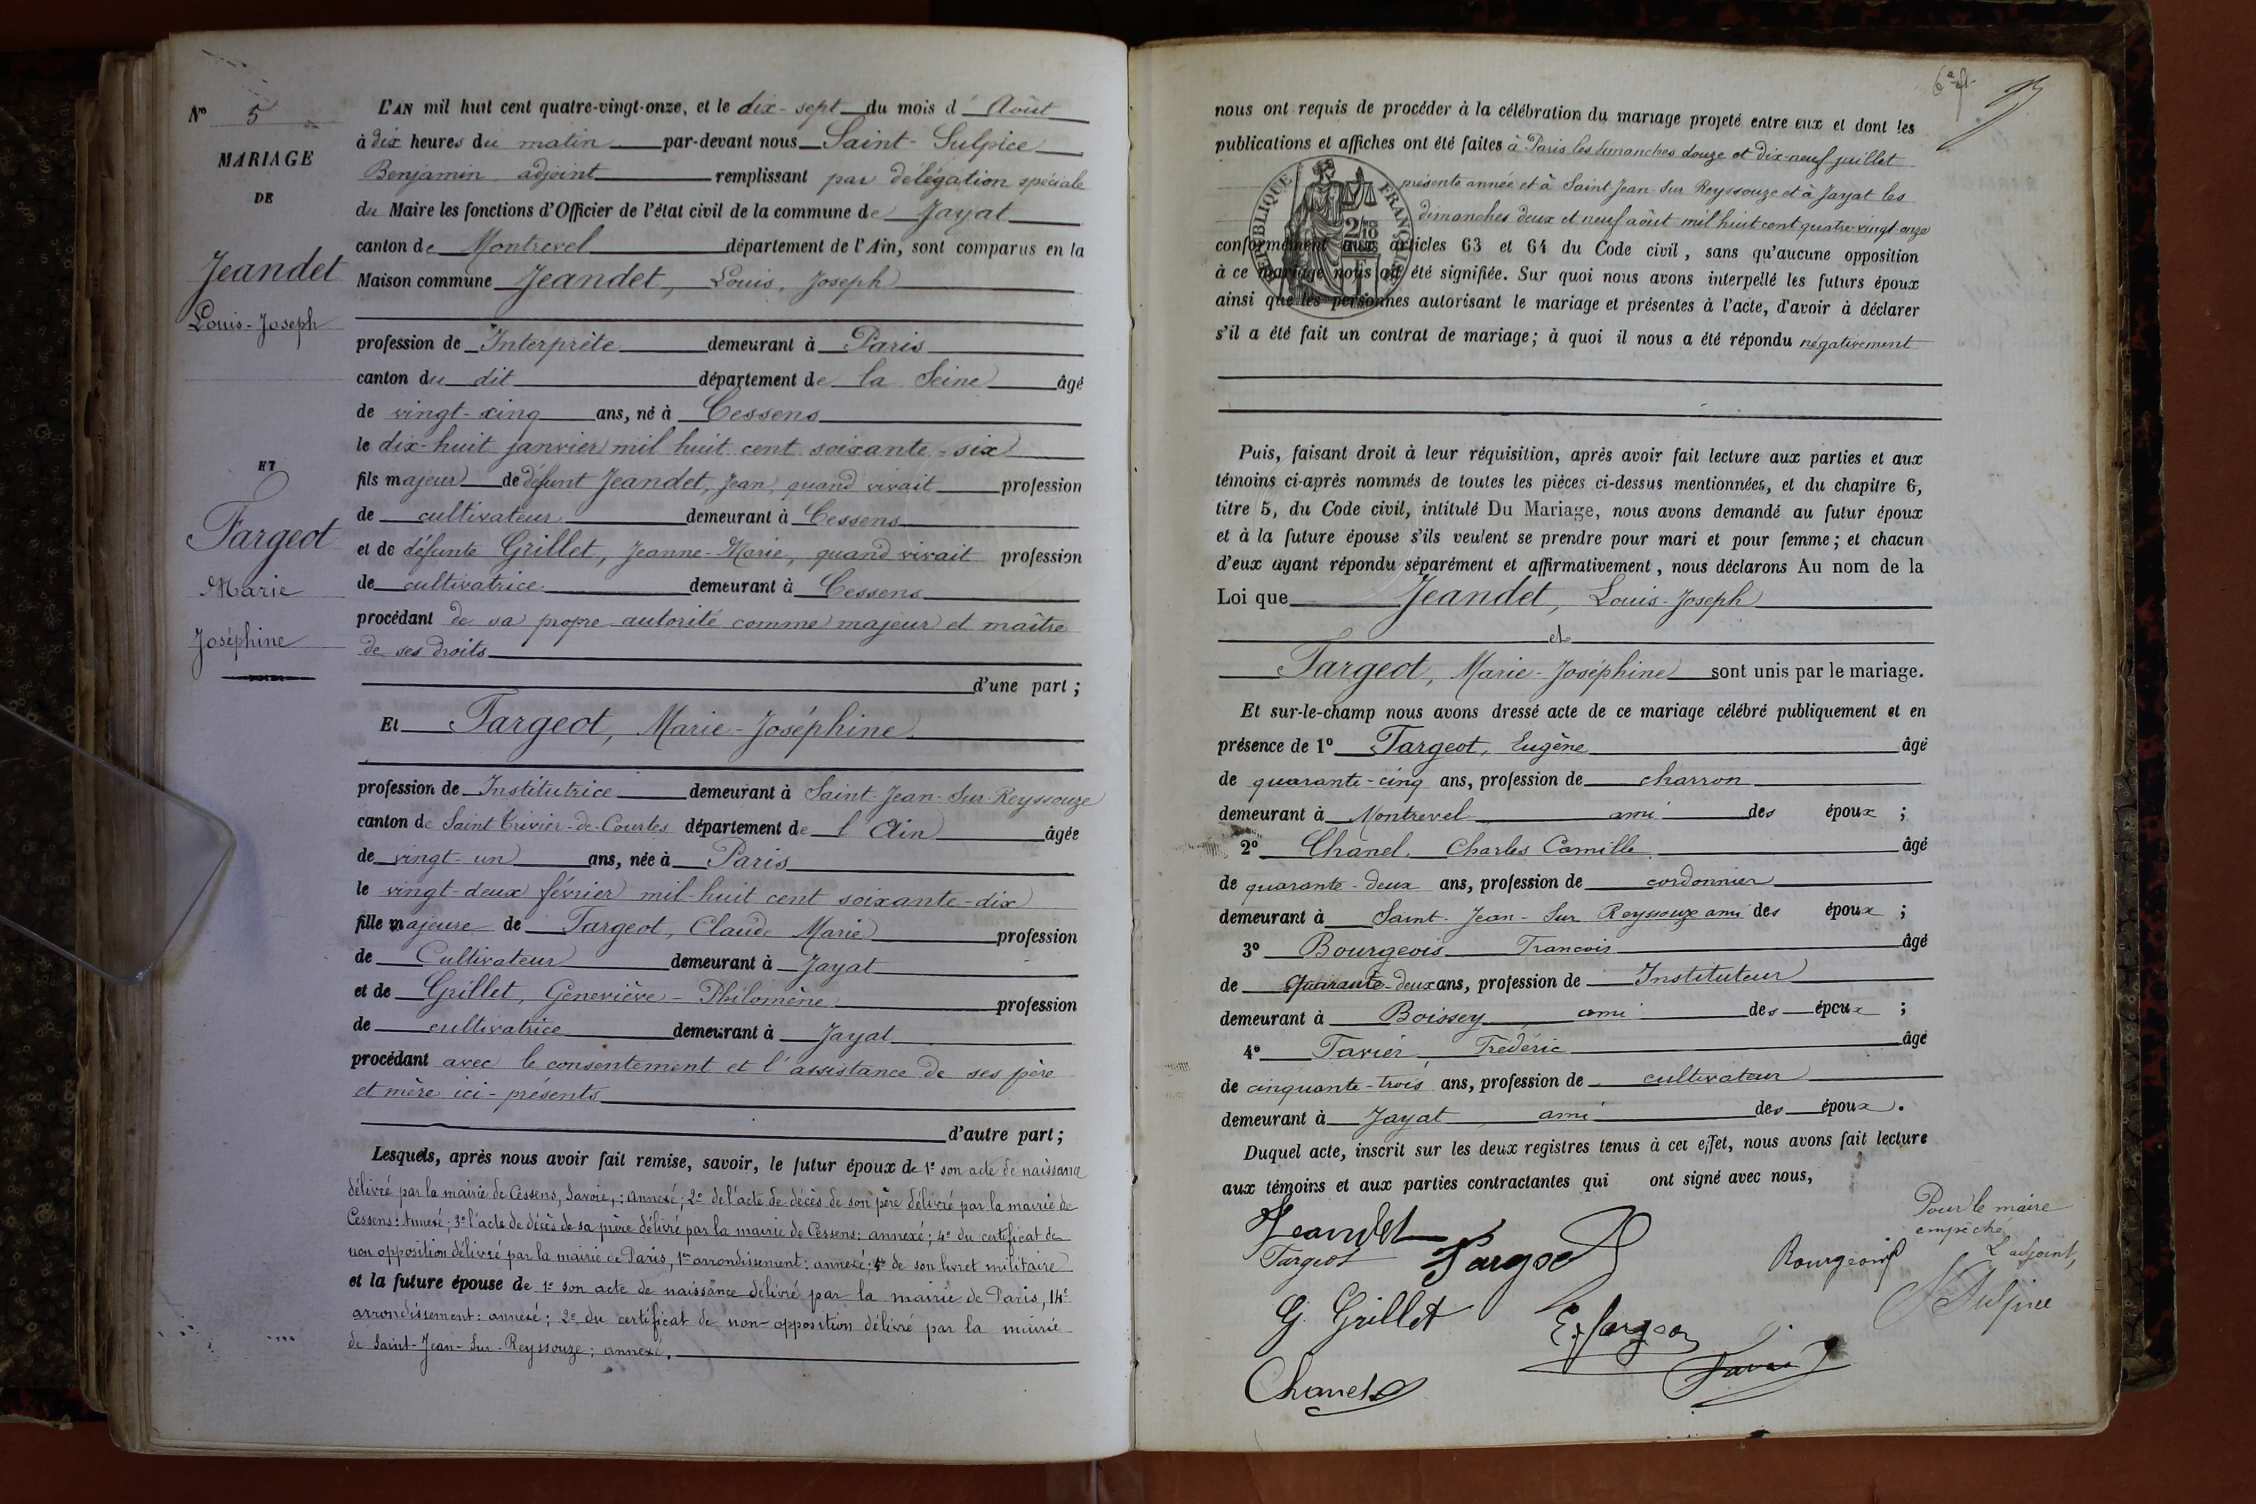 Nº 5
MARIAGE
DE
Jeandet
Louis-Joseph
ET
Fargeot
Marie
Joséphine
L'AN mil huit cent quatre-vingt-onze, et le dix-sept du mois d'Août
à dix heures du matin par-devant nous Saint-Sulpice
Benjamin adjoint remplissant par délégation spéciale
du Maire les fonctions d'Officier de l'état civil de la commune de Jayat
canton de Montrevel département de l'Ain, sont comparus en la
Maison commune Jeandet, Louis, Joseph
profession de Interprète demeurant à Paris
canton du dit département de la Seine âgé
de vingt-cinq ans, né à Cessens
le dix-huit janvier mil huit cent soixante-six
fils majeur de défunt Jeandet, Jean, quand vivait profession
de cultivateur demeurant à Cessens
et de défunte Grillet, Jeanne-Marie, quand vivait profession
de cultivatrice demeurant à Cessens
procédant de sa propre autorité comme majeur et maître
de ses droits
d'une part ;
Et Fargeot, Marie-Joséphine
profession de Institutrice demeurant à Saint-Jean-Sur-Reyssouze
canton de Saint Trivier-de-Courtes département de l'Ain âgée
de vingt-un ans, née à Paris
le vingt-deux février mil-huit cent soixante-dix
fille majeure de Fargeot, Claude Marie profession
de Cultivateur demeurant à Jayat
et de Grillet, Geneviève-Philomène profession
de cultivatrice demeurant à Jayat
procédant avec le consentement et l'assistance de ses père
et mère ici-présents
d'autre part ;
Lesquels, après nous avoir fait remise, savoir, le futur époux de 1º son acte de naissance
délivré par la mairie de Cessens, Savoie, : annexé ; 2º de l'acte de décès de son père délivré par la mairie de
Cessens : Annexé ; 3º l'acte de décès de sa mère délivré par la mairie de Cessens : annexé ; 4º du certificat de
non opposition délivré par la mairie de Paris, 1er arrondissement : annexé ; 5º de son livret militaire
et la future épouse de 1º son acte de naissance délivré par la mairie de Paris, 14e
arrondissement : annexé ; 2º du certificat de non-opposition délivré par la mairie
de Saint-Jean-Sur-Reyssouze ; annexé.
nous ont requis de procéder à la célébration du mariage projeté entre eux et dont les
publications et affiches ont été faites à Paris les dimanches douze et dix-neuf juillet
présente année et à Saint Jean Sur Reyssouze et à Jayat les
dimanches deux et neuf août mil huit cent quatre-vingt-onze
RÉPUBLIQUE FRANÇAISE
conformément aux articles 63 et 64 du Code civil, sans qu'aucune opposition
à ce mariage nous ait été signifiée. Sur quoi nous avons interpellé les futurs époux
ainsi que les personnes autorisant le mariage et présentes à l'acte, d'avoir à déclarer
s'il a été fait un contrat de mariage ; à quoi il nous a été répondu négativement
Puis, faisant droit à leur réquisition, après avoir fait lecture aux parties et aux
témoins ci-après nommés de toutes les pièces ci-dessus mentionnées, et du chapitre 6,
titre 5, du Code civil, intitulé Du Mariage, nous avons demandé au futur époux
et à la future épouse s'ils veulent se prendre pour mari et pour femme ; et chacun
d'eux ayant répondu séparément et affirmativement, nous déclarons Au nom de la
Loi que Jeandet, Louis-Joseph
et
Fargeot, Marie-Joséphine sont unis par le mariage.
Et sur-le-champ nous avons dressé acte de ce mariage célébré publiquement et en
présence de 1º Fargeot, Eugène âgé
de quarante-cinq ans, profession de charron
demeurant à Montrevel ami des époux ;
2º Chanel, Charles Camille âgé
de quarante-deux ans, profession de cordonnier
demeurant à Saint-Jean-Sur Reyssouze ami des époux ;
3º Bourgeois Francois âgé
de Quarante-deux ans, profession de Instituteur
demeurant à Boissey ami des époux ;
4º Favier, Frédéric âgé
de cinquante-trois ans, profession de cultivateur
demeurant à Jayat ami des époux.
Duquel acte, inscrit sur les deux registres tenus à cet effet, nous avons fait lecture
aux témoins et aux parties contractantes qui ont signé avec nous,
Jeandet
Fargeot Fargeot
Bourgeois
Pour le maire
empêché
L'adjoint,
St Sulpice
G. Grillet
E. Fargeot
Favier
Chanel